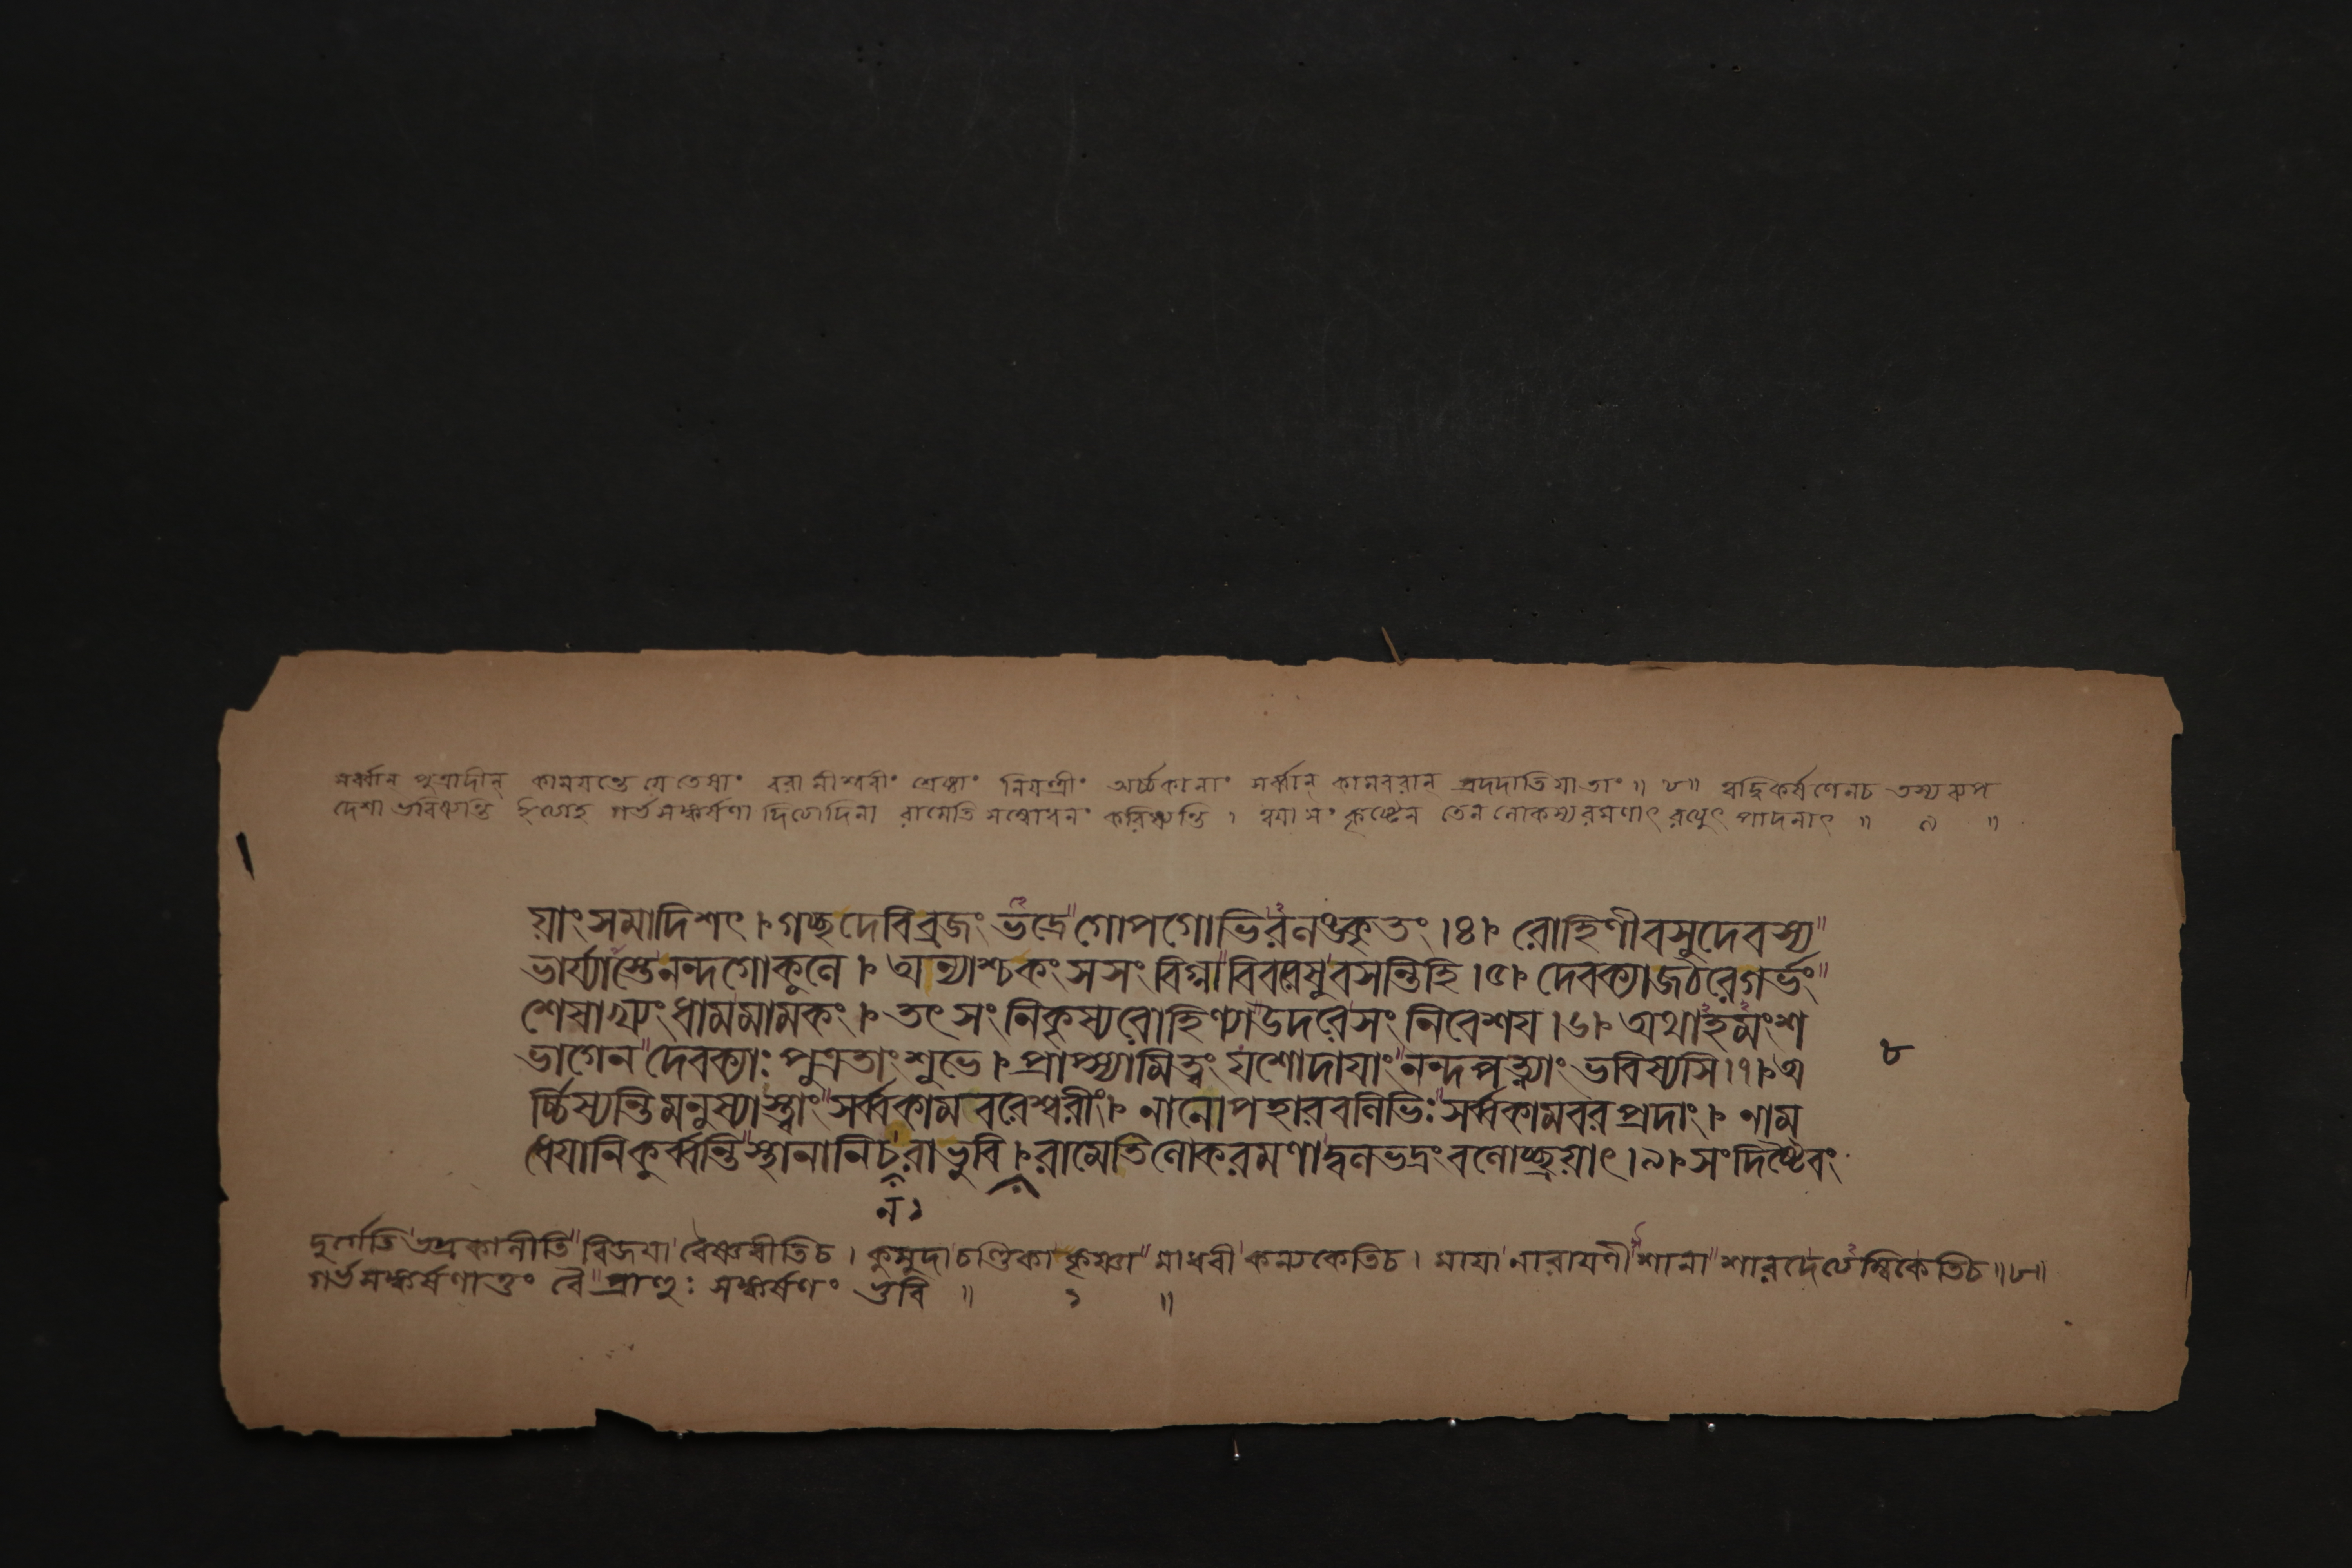 সর্ব্বান্ পুত্রাদীন্ কাময়ন্তে যে তেষাং বরামীশ্বরীং শ্রেষ্ঠাং নিয়ন্ত্রীং অর্চ্চকানাং সর্ব্বান্ কামবরান্ প্রদদাতি যা তাং ॥ ৮ ॥
দেশা ভবিষ্যন্তি গর্ভসঙ্কর্ষণাদিত্যাদিনা রামেতি সম্বোধনং করিষ্যন্তি । তেন লোকস্য রমণাৎ ॥ ৯ ॥
য়াং সমাদিশৎ । গচ্ছ দেবি ব্রজং ভদ্রে গোপগোভিরলঙ্কৃতং ।৪। রোহিণী বসুদেবস্য
ভার্য্যাস্তে নন্দগোকুলে । অন্যাশ্চ কংসসংবিগ্না বিবরেষু বসন্তি হি ।৫। দেবক্যা জঠরে গর্ভং
শেষাখ্যং ধাম মামকং । তৎ সংনিকৃষ্য রোহিণ্যা উদরে সংনিবেশয় ।৬। অথাহমংশ
ভাগেন দেবক্যাঃ পুত্রতাং শুভে । প্রাপ্স্যামি ত্বং যশোদায়াং নন্দপত্ন্যাং ভবিষ্যসি ।৭। অ
র্চ্চিষ্যন্তি মনুষ্যাস্ত্বাং সর্ব্বকামবরেশ্বরীং । নানোপহারবলিভিঃ সর্ব্বকামবরপ্রদাং । নাম
৮
ধেয়ানি কুর্ব্বন্তি স্থানানি চ রা ভুবি । রামেতি লোকরমণাদ্বলভদ্রং বলোচ্ছ্রয়াৎ ।৯। সংদিষ্টৈবং
ন ১
দুর্গেতি ভদ্রকালীতি বিজয়া বৈষ্ণবীতি চ । কুমুদা চণ্ডিকা কৃষ্ণা মাধবী কন্যকেতি চ । মায়া নারায়ণীশানা শারদেত্যম্বিকেতি চ ॥৮॥
গর্ভসঙ্কর্ষণাত্তং বৈ প্রাহুঃ সঙ্কর্ষণং ভুবি ॥ ১ ॥